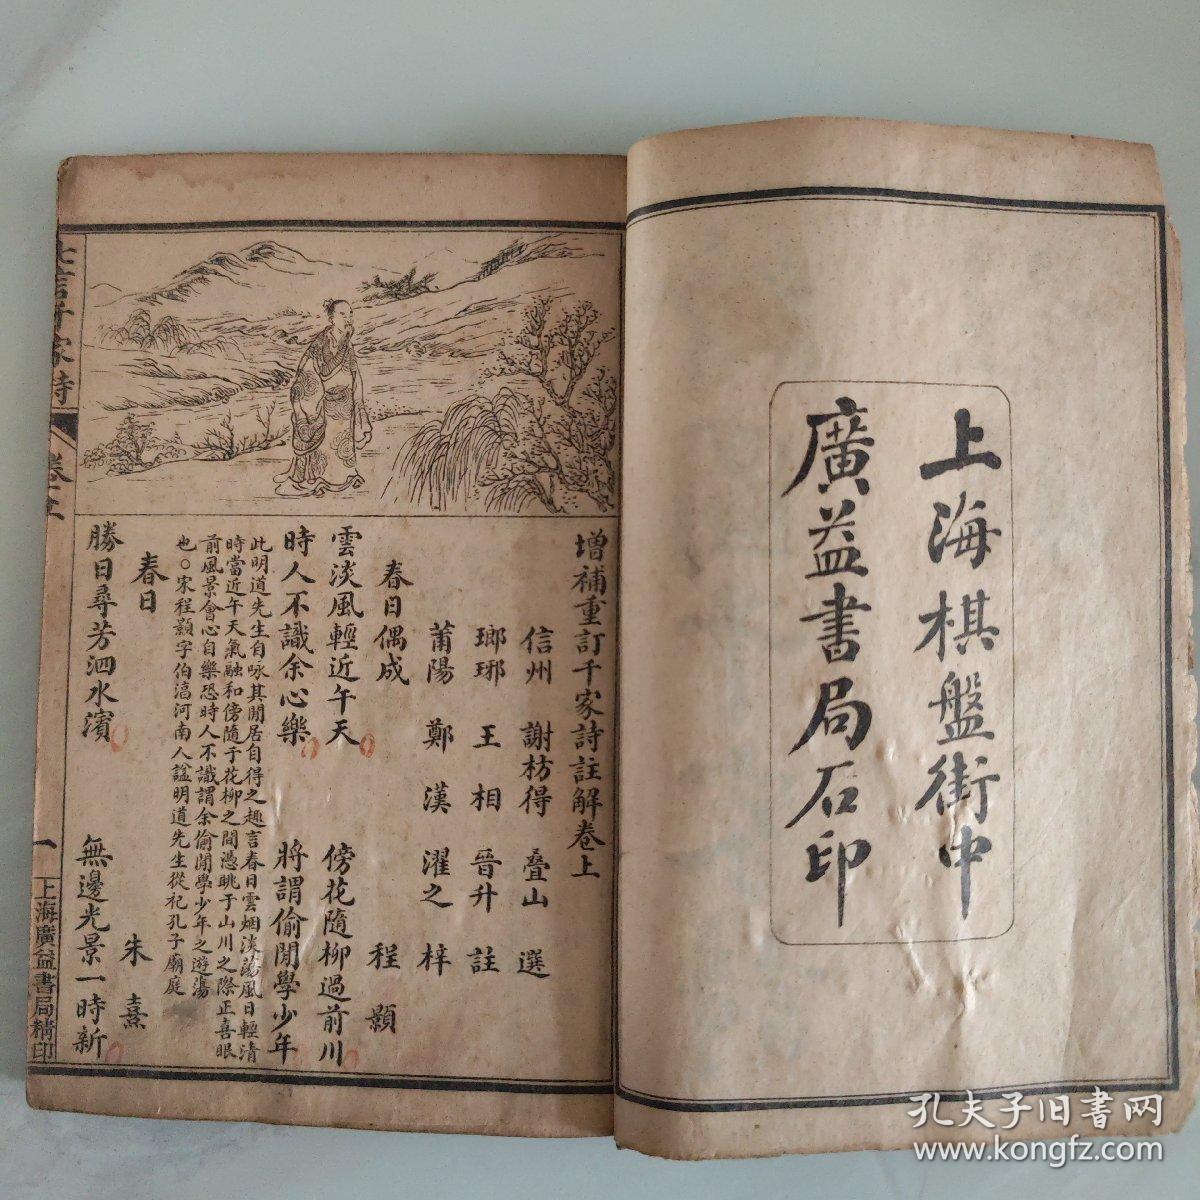 上海棋盤街中
廣益書局石印
增補重訂千家詩註解卷上
信州 謝枋得 叠山 選
瑯琊 王相 晉升 註
莆陽 鄭漢 濯之 梓
春日偶成 程顥
雲淡風輕近午天 傍花隨柳過前川
時人不識余心樂 將謂偷閒學少年
此明道先生自咏其閒居自得之趣言春日雲烟淡蕩風日輕清
時當近午天氣融和傍隨于花柳之間憑眺于山川之際正喜眼
前風景會心自樂恐時人不識謂余偷閒學少年之遊蕩
也○宋程顥字伯淳河南人謚明道先生從祀孔子廟庭
春日 朱熹
勝日尋芳泗水濱 無邊光景一時新
七言千家詩 卷上 一 上海廣益書局精印
孔夫子旧書网
www.kongfz.com